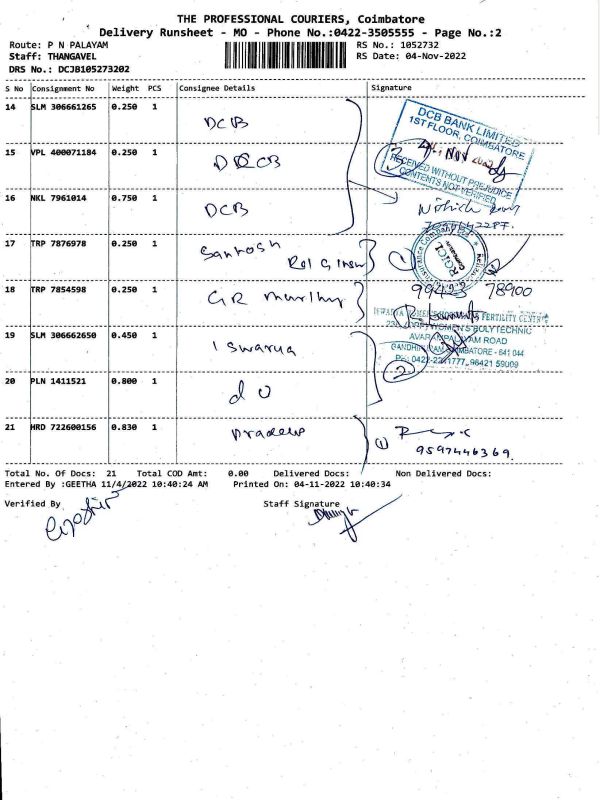 THE PROFESSIONAL COURIERS, Coimbatore
Delivery Runsheet - MO - Phone No.:0422-3505555 - Page No.:2
Route: P N PALAYAM RS No.: 1052732
Staff: THANGAVEL RS Date: 04-Nov-2022
DRS No.: DCJB105273202
S No Consignment No Weight PCS Consignee Details Signature
14 SLM 306661265 0.250 1 DCB
DCB BANK LIMITED
1ST FLOOR, COIMBATORE
15 VPL 400071184 0.250 1
3
RECEIVED WITHOUT PREJUDICE
CONTENTS NOT VERIFIED
16 NKL 7961014 0.750 1 DCB
17 TRP 7876978 0.250 1 Santhosh
1
RGICL
18 TRP 7854598 0.250 1 GR murthy
99423 78900
FERTILITY CENTRE
WOMEN'S POLYTECHNIC
19 SLM 306662650 0.450 1 Iswarya
ROAD
COIMBATORE - 641 044
98421 59009
2
20 PLN 1411521 0.800 1 do
21 HRD 722600156 0.830 1 Pradeep 1
9597446369
Total No. Of Docs: 21 Total COD Amt: 0.00 Delivered Docs: Non Delivered Docs:
Entered By :GEETHA 11/4/2022 10:40:24 AM Printed On: 04-11-2022 10:40:34
Verified By Staff Signature